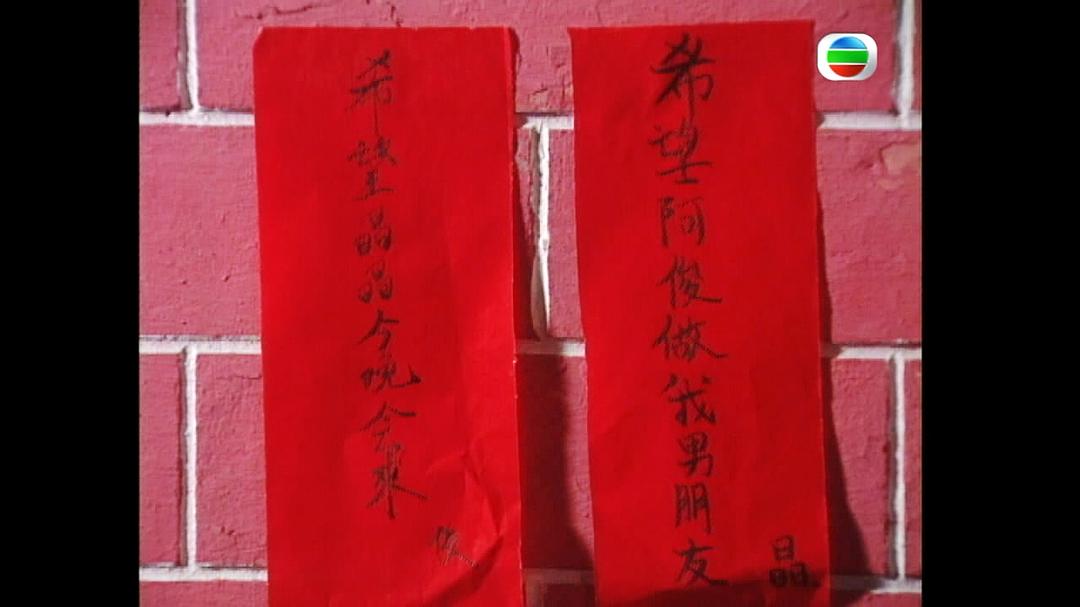 希望晶晶今晚会來
俊
希望阿俊做我男朋友
晶